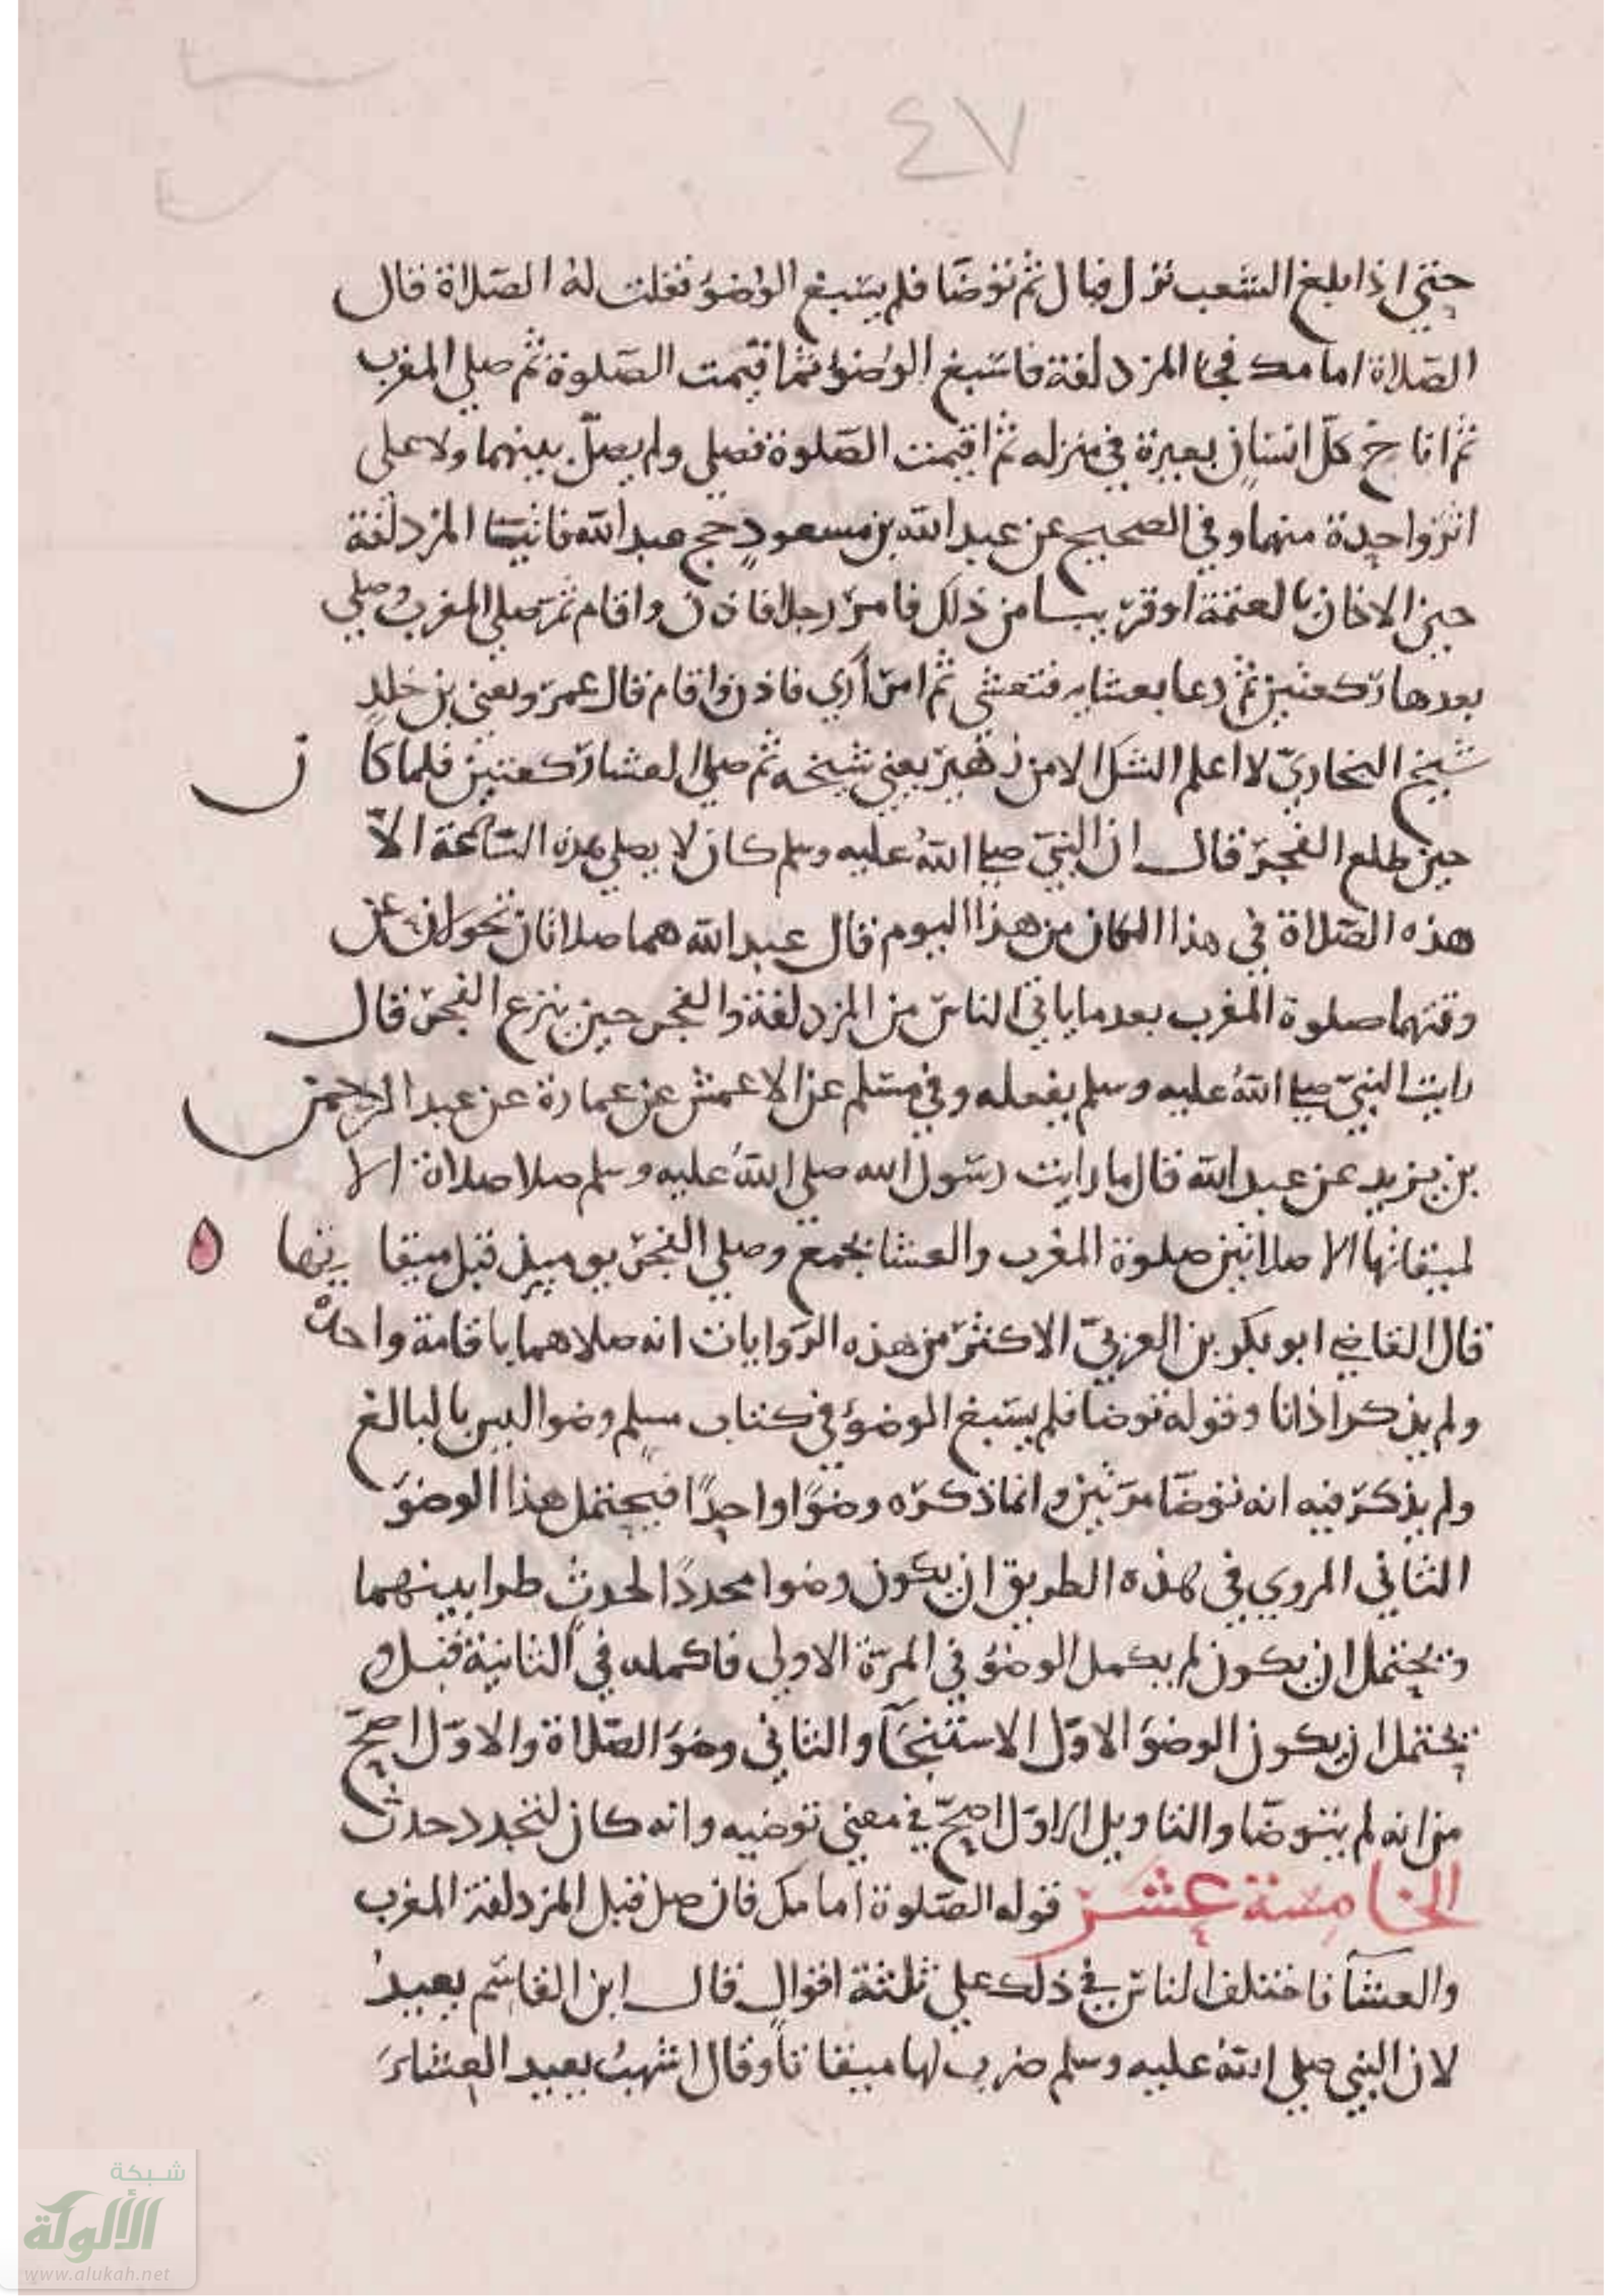 ٤٧
حتي اذا بلغ الشعب نزل فبال ثم توضا فلم يسبغ الوضوء فقلت له الصلاة قال
الصلاة امامك فجا المزدلفة فاسبغ الوضوء ثم اقيمت الصلوة ثم صلي المغرب
ثم اناخ كل انسان بعيره في منزله ثم اقيمت الصلوة فصلي ولم يصل بينهما ولا علي
اثر واحدة منهما وفي الصحيح عن عبد الله بن مسعود حج عبد الله فاتينا المزدلفة
حين الاذان بالعتمة او قريبا من ذلك فامر رجلا فاذن واقام ثم صلي المغرب وصلي
بعدها ركعتين ثم دعا بعشايه فتعشي ثم امر أري فاذن واقام قال عمر ويعني بن خلد
شيخ البخاري لا اعلم الشك الا من زهير يعني شيخه ثم صلي العشا ركعتين فلما كان
حين طلع الفجر قال ان النبي صلي الله عليه وسلم كان لا يصلي هذه الساعة الا
هذه الصلاة في هذا المكان من هذا اليوم قال عبد الله هما صلاتان تحولان عن
وقتهما صلوة المغرب بعد ما ياتي الناس من المزدلفة والفجر حين ينزع الفجر قال
رايت النبي صلي الله عليه وسلم يفعله وفي مسلم عن الاعمش عن عمارة عن عبد الرحمن
بن يزيد عن عبد الله قال ما رايت رسول الله صلي الله عليه وسلم صلا صلاة الا
لميقاتها الا صلاتين صلوة المغرب والعشا بجمع وصلي الفجر يوميذ قبل ميقاتها ه
قال القاضي ابو بكر بن العربي الاكثر من هذه الروايات انه صلاهما باقامة واحدة
ولم يذكر اذانا وقوله توضا فلم يسبغ الوضوء في كتاب مسلم وضوا ليس بالبالغ
ولم يذكر فيه انه توضا مرتين وانما ذكره وضوا واحدا فيحتمل هذا الوضو
الثاني المروي في هذه الطريق ان يكون وضوا مجددا لحدث طرا بينهما
ويحتمل ان يكون لم يكمل الوضو في المرة الاولي فاكمله في الثانية قبل و
يحتمل ان يكون الوضو الاول الاستنجا والثاني وضو الصلاة والاول اصح
من انه لم يتوضا والتاويل الاول اصح في معني توضيه وانه كان لتجدد حدث
الخامسة عشر قوله الصلوة امامك فان صل قبل المزدلفة المغرب
والعشا فاختلف الناس في ذلك علي ثلثة اقوال قال ابن القاسم يعيد
لان النبي صلي الله عليه وسلم ضرب لها ميقاتا وقال اشهب يعيد العشاء
شبكة
الألوكة
www.alukah.net